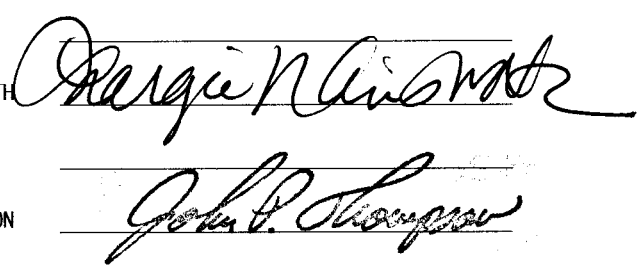 TH Margie N Ainsworth
ON John P. Thompson